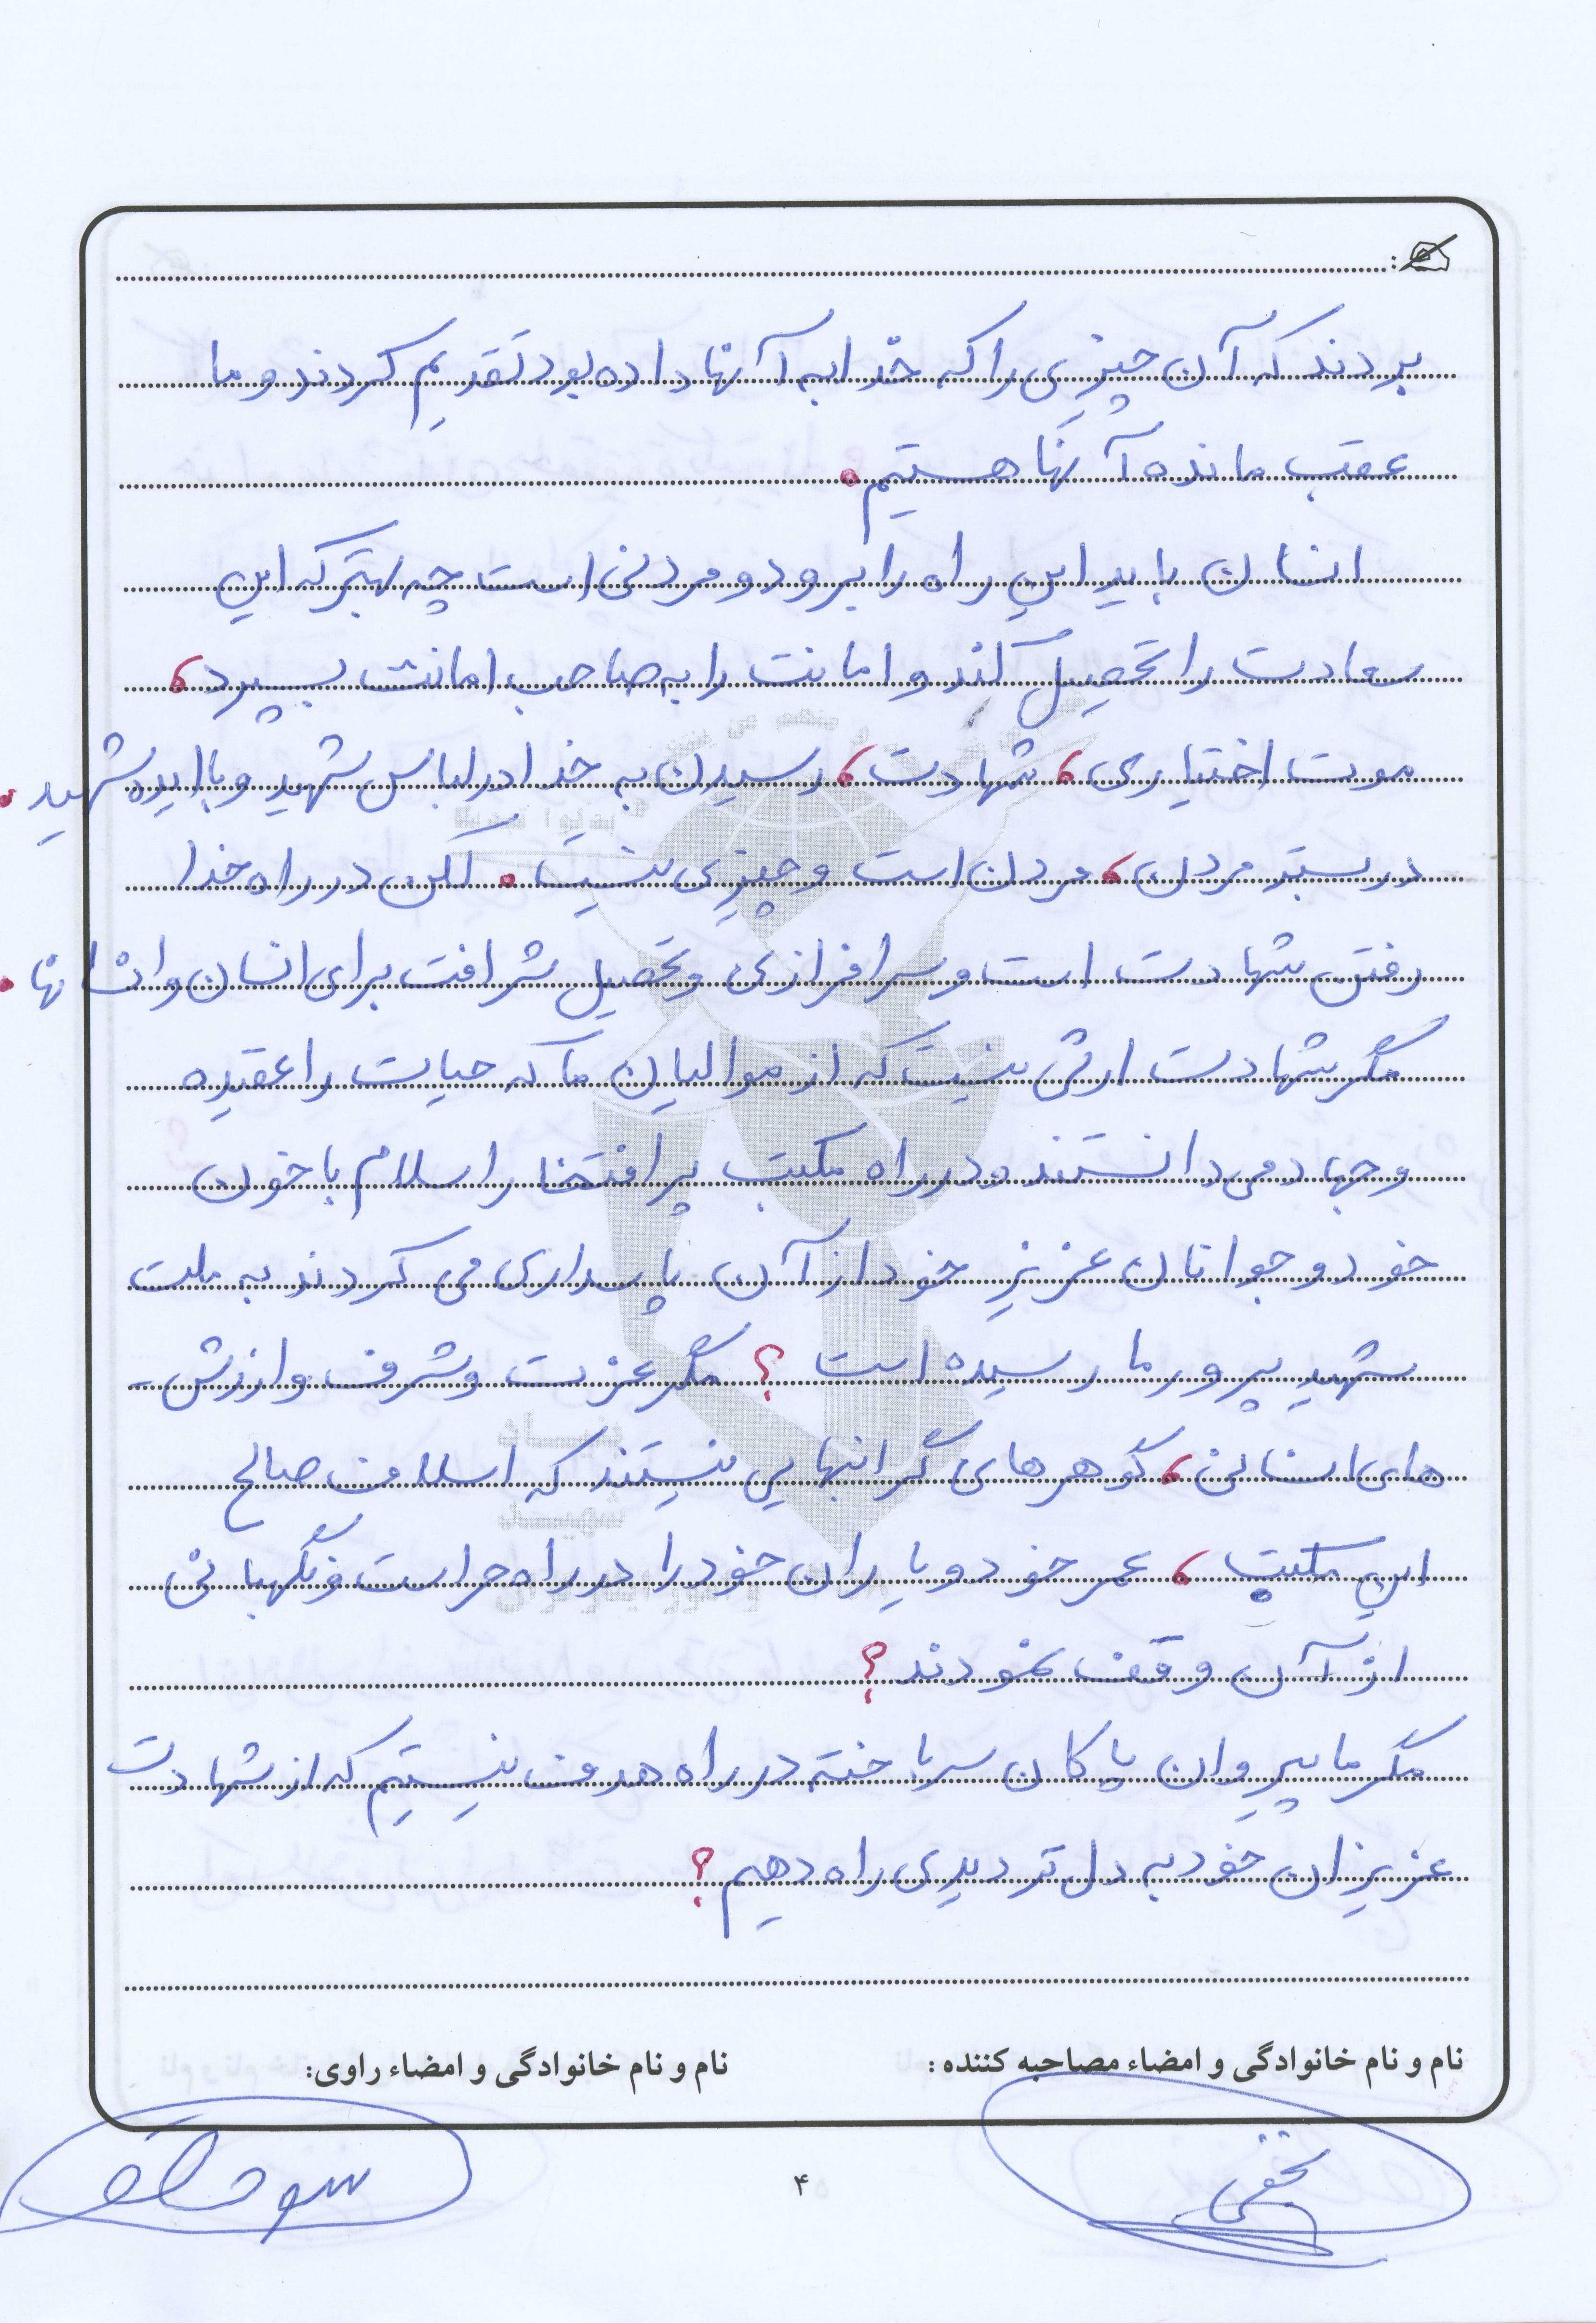 بردند که آن چیزی را که خدا به آنها داده بود تقدیم کردند و ما
عقب مانده آنها هستیم.
انسان باید این راه را برود و مردنی است چه بهتر که این
سعادت را تحصیل کند و امانت را به صاحب امانت بسپرد،
موت اختیاری، شهادت، رسیدن به خدا در لباس شهید و با ایده شهید.
در بستر مردن، مردن است و چیزی نیست. لکن در راه خدا
رفتن شهادت است و سرافرازی و تحصیل شرافت برای انسان و انسانها.
مگر شهادت ارثی نیست که از موالیان ما که حیات را عقیده
و جهاد می دانستند و در راه مکتب پر افتخار اسلام با خون
خود و جوانان عزیز خود از آن پاسداری می کردند به ملت
شهید پرور ما رسیده است؟ مگر عزت و شرف و ارزش-
های انسانی، گوهرهای گرانبهایی نیستند که اسلاف صالح
این مکتب، عمر خود و یاران خود را در راه حراست و نگهبانی
از آن وقف نمودند؟
مگر ما پیروان پاکان سرباخته در راه هدف نیستیم که از شهادت
عزیزان خود به دل تردیدی راه دهیم؟
نام و نام خانوادگی و امضاء مصاحبه کننده: نام و نام خانوادگی و امضاء راوی:
۴